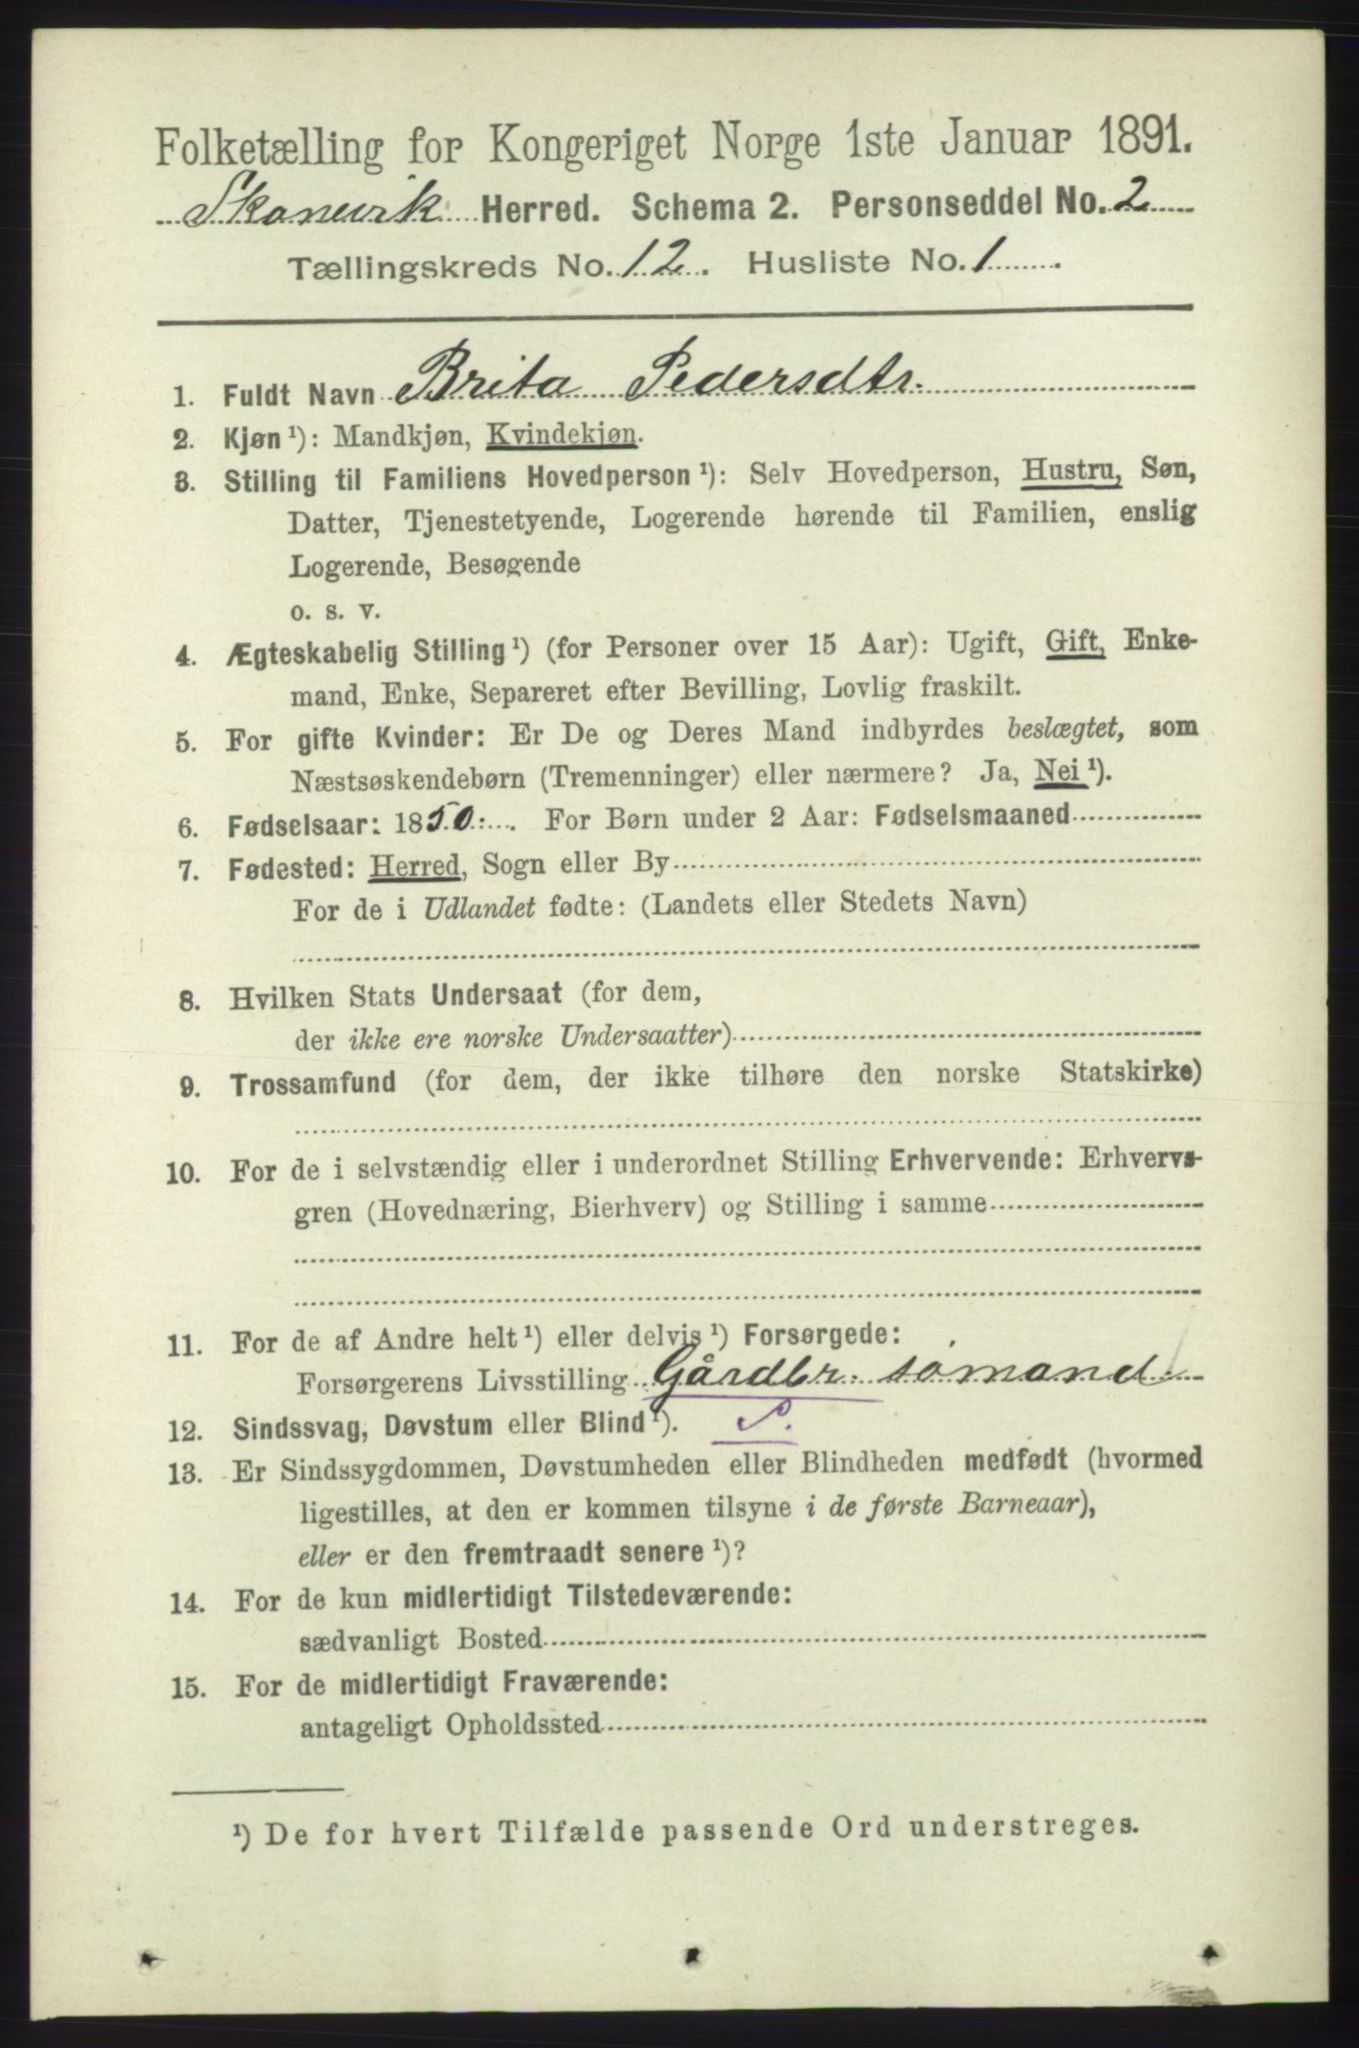 Folketælling for Kongeriget Norge 1ste Januar 1891.
Skonevik Herred. Schema 2. Personseddel No. 2
Tællingskreds No. 12. Husliste No. 1
1. Fuldt Navn Brita Pedersdtr.
2. Kjøn ¹): Mandkjøn, Kvindekjøn.
3. Stilling til Familiens Hovedperson ¹): Selv Hovedperson, Hustru, Søn,
Datter, Tjenestetyende, Logerende hørende til Familien, enslig
Logerende, Besøgende
o. s. v.
4. Ægteskabelig Stilling ¹) (for Personer over 15 Aar): Ugift, Gift, Enke-
mand, Enke, Separeret efter Bevilling, Lovlig fraskilt.
5. For gifte Kvinder: Er De og Deres Mand indbyrdes beslægtet, som
Næstsøskendebørn (Tremenninger) eller nærmere? Ja, Nei ¹).
6. Fødselsaar: 1850. For Børn under 2 Aar: Fødselsmaaned
7. Fødested: Herred, Sogn eller By
For de i Udlandet fødte: (Landets eller Stedets Navn)
8. Hvilken Stats Undersaat (for dem,
der ikke ere norske Undersaatter)
9. Trossamfund (for dem, der ikke tilhøre den norske Statskirke)
10. For de i selvstændig eller i underordnet Stilling Erhvervende: Erhvervs-
gren (Hovednæring, Bierhverv) og Stilling i samme
11. For de af Andre helt ¹) eller delvis ¹) Forsørgede:
Forsørgerens Livsstilling Gårdbr. sømand
12. Sindssvag, Døvstum eller Blind ¹). S.
13. Er Sindssygdommen, Døvstumheden eller Blindheden medfødt (hvormed
ligestilles, at den er kommen tilsyne i de første Barneaar),
eller er den fremtraadt senere ¹)?
14. For de kun midlertidigt Tilstedeværende:
sædvanligt Bosted
15. For de midlertidigt Fraværende:
antageligt Opholdssted
¹) De for hvert Tilfælde passende Ord understreges.